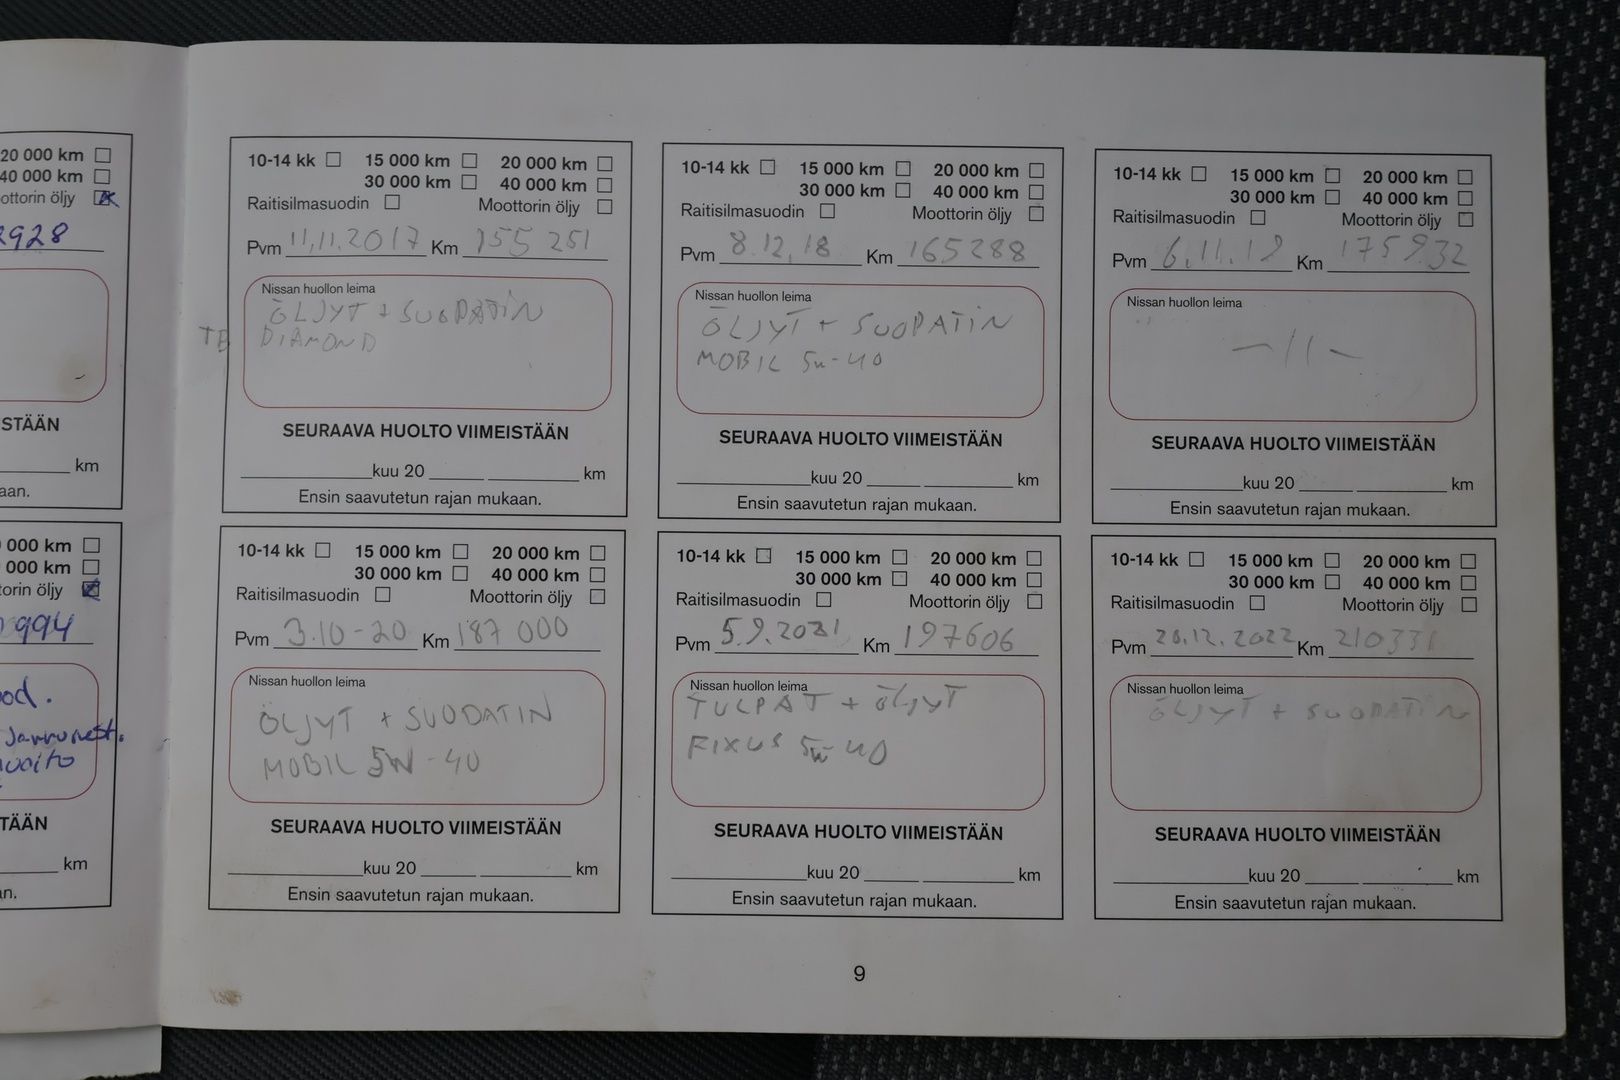 20 000 km
40 000 km
ottorin öljy
2928
STÄÄN
km
aan.
000 km
000 km
torin öljy
994
od.
Jarrunest.
TÄÄN
km
an.
10-14 kk 15 000 km 20 000 km
30 000 km 40 000 km
Raitisilmasuodin Moottorin öljy
Pvm 11.11.2017 Km 155 251
Nissan huollon leima
ÖLJYT + SUODATIN
TB DIAMOND
SEURAAVA HUOLTO VIIMEISTÄÄN
kuu 20 km
Ensin saavutetun rajan mukaan.
10-14 kk 15 000 km 20 000 km
30 000 km 40 000 km
Raitisilmasuodin Moottorin öljy
Pvm 8.12.18 Km 165288
Nissan huollon leima
ÖLJYT + SUODATIN
MOBIL 5W-40
SEURAAVA HUOLTO VIIMEISTÄÄN
kuu 20 km
Ensin saavutetun rajan mukaan.
10-14 kk 15 000 km 20 000 km
30 000 km 40 000 km
Raitisilmasuodin Moottorin öljy
Pvm 6.11.19 Km 175932
Nissan huollon leima
-11-
SEURAAVA HUOLTO VIIMEISTÄÄN
kuu 20 km
Ensin saavutetun rajan mukaan.
10-14 kk 15 000 km 20 000 km
30 000 km 40 000 km
Raitisilmasuodin Moottorin öljy
Pvm 3.10-20 Km 187 000
Nissan huollon leima
ÖLJYT + SUODATIN
MOBIL 5W-40
SEURAAVA HUOLTO VIIMEISTÄÄN
kuu 20 km
Ensin saavutetun rajan mukaan.
10-14 kk 15 000 km 20 000 km
30 000 km 40 000 km
Raitisilmasuodin Moottorin öljy
Pvm 5.9.2021 Km 197606
Nissan huollon leima
TULPAT + ÖLJYT
FIXUS 5W-40
SEURAAVA HUOLTO VIIMEISTÄÄN
kuu 20 km
Ensin saavutetun rajan mukaan.
10-14 kk 15 000 km 20 000 km
30 000 km 40 000 km
Raitisilmasuodin Moottorin öljy
Pvm 20.12.2022 Km 210331
Nissan huollon leima
ÖLJYT + SUODATIN
SEURAAVA HUOLTO VIIMEISTÄÄN
kuu 20 km
Ensin saavutetun rajan mukaan.
9